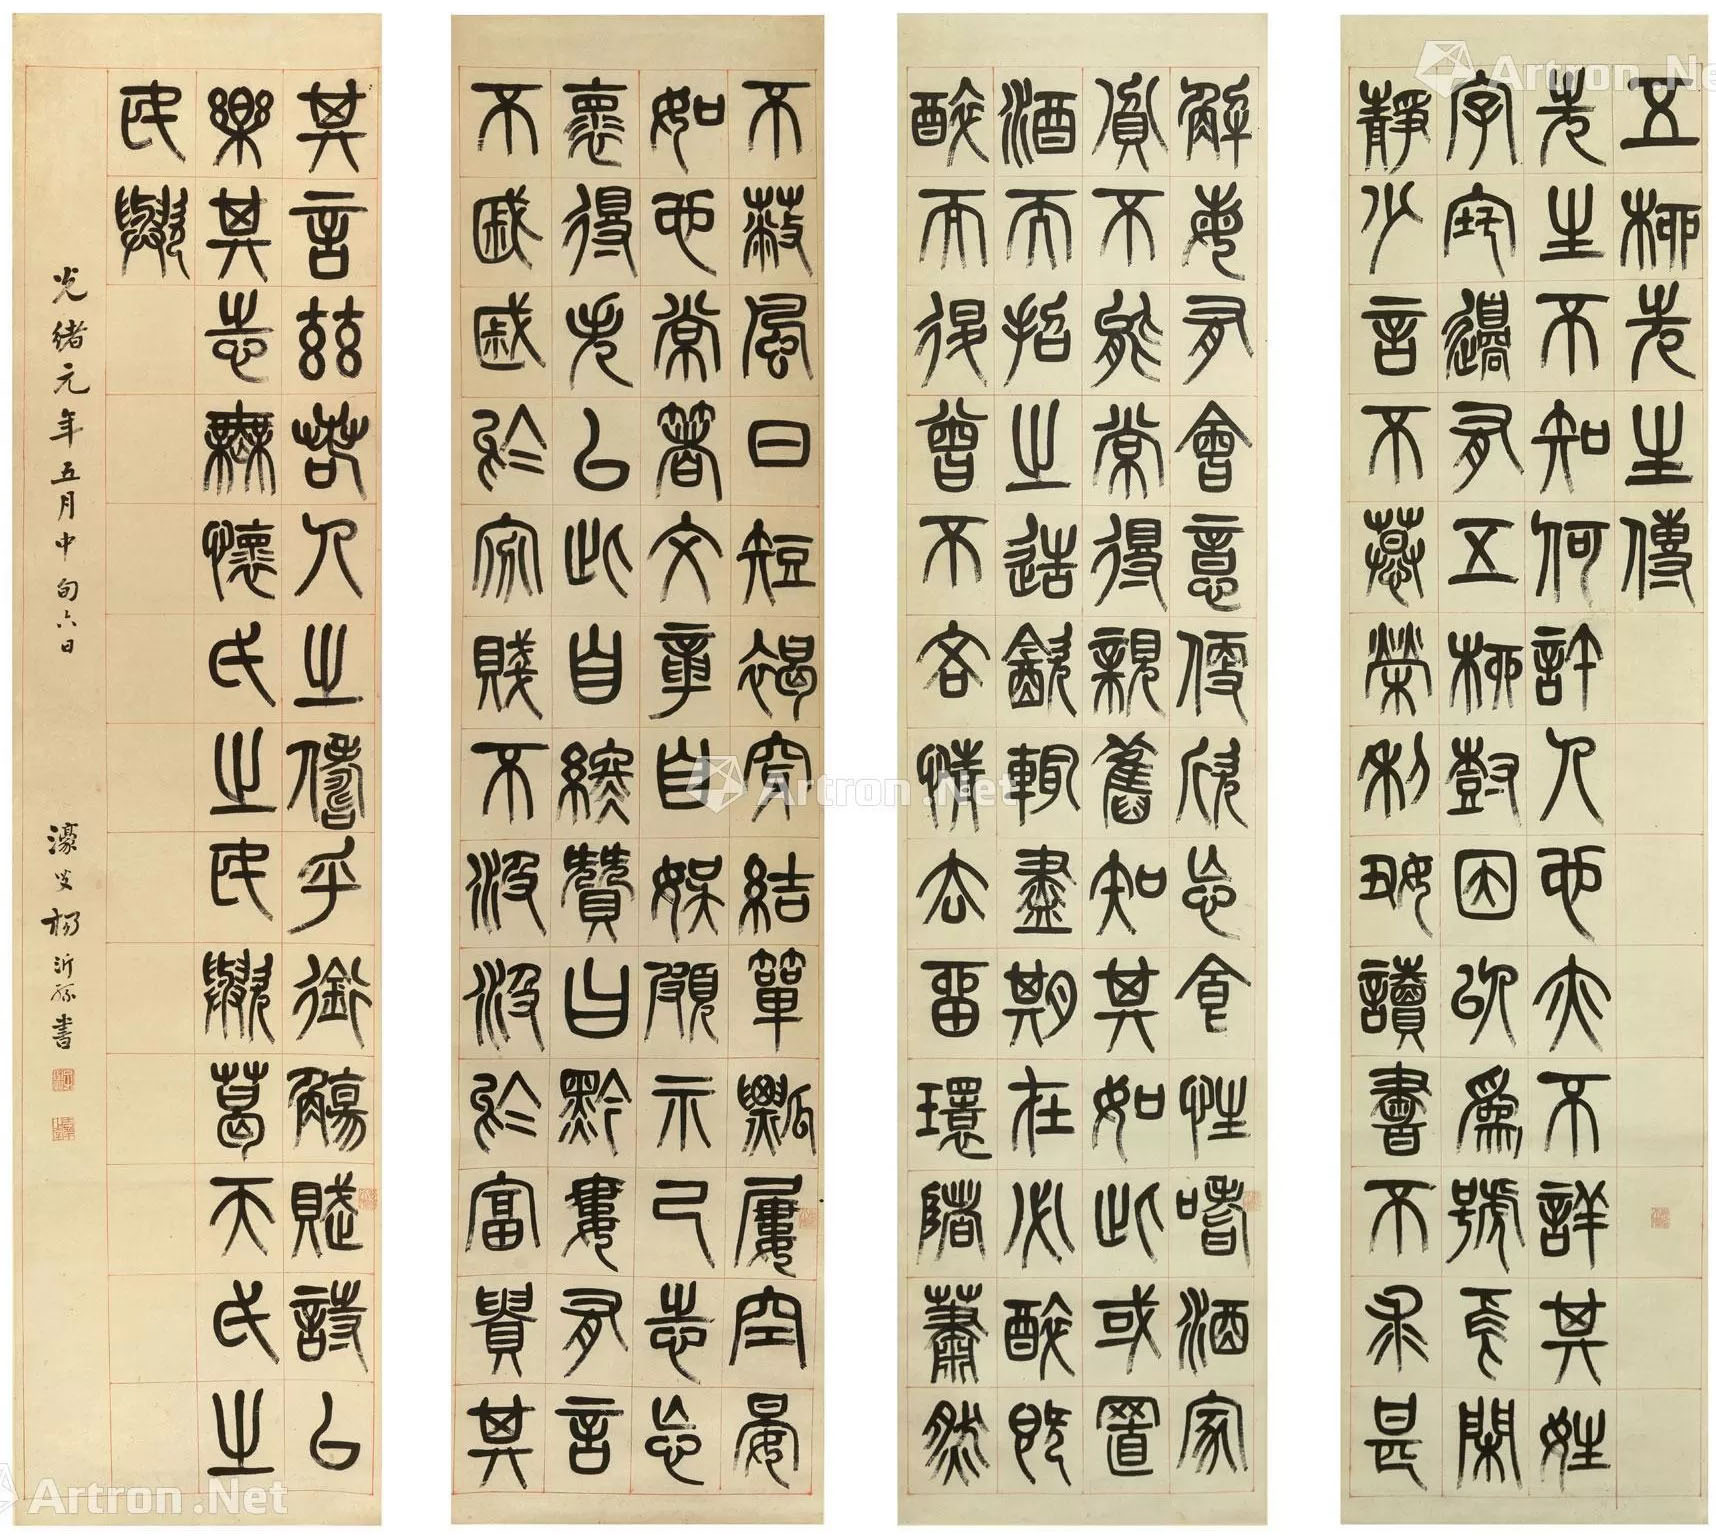 五柳先生傳
先生不知何許人也亦不詳其姓
字宅邊有五柳樹因以為號焉閑
靜少言不慕榮利好讀書不求甚
解每有會意便欣忘食性嗜酒家
貧不能常得親舊知其如此或置
酒而招之造飲輒盡期在必醉既
醉而退曾不吝情去留環堵蕭然
不蔽風日短褐穿結簞瓢屢空晏
如也常著文章自娛頗示己志忘
懷得失以此自終贊曰黔婁有言
不戚戚於貧賤不汲汲於富貴其
其言茲若人之儔乎銜觴賦詩以
樂其志無懷氏之民歟葛天氏之
民歟
光緒元年五月中旬六日 濠叟楊沂孫書
Artron.Net
Artron.Net
Artron.Ne